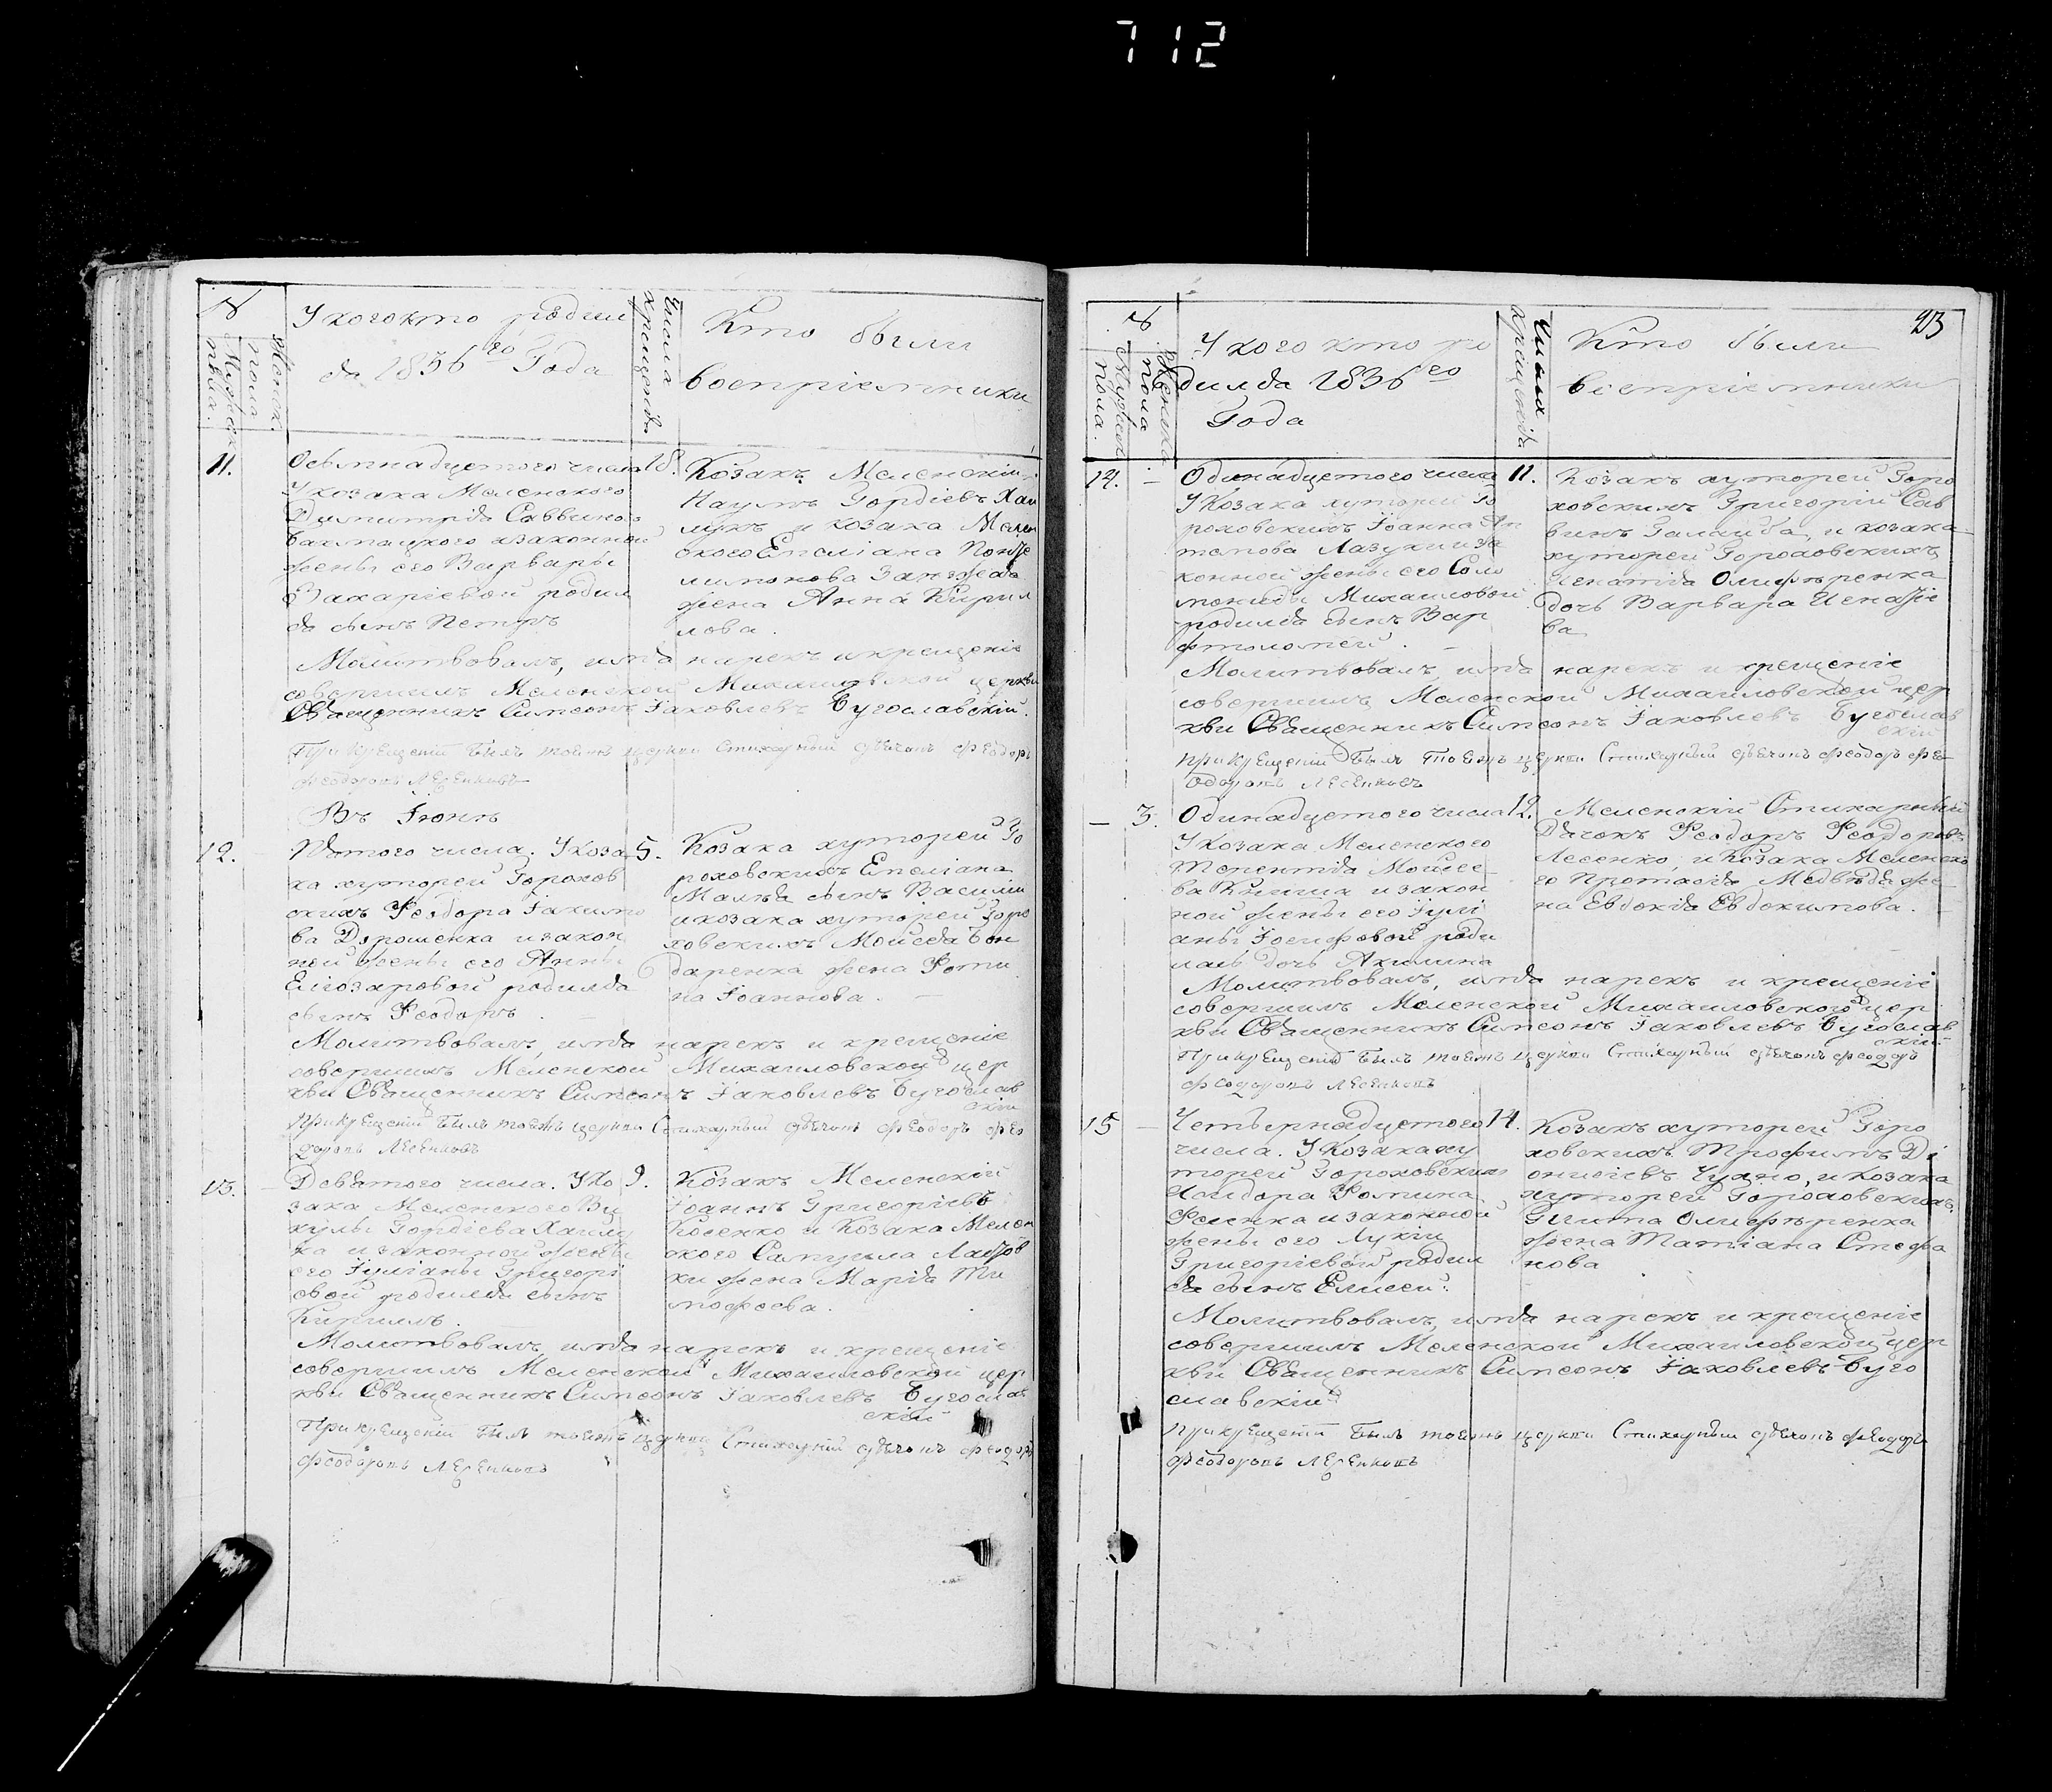 712
№
Мужеск
пола.
Женск
пола
У кого кто родил
ся 1836го Года
Числа
крещенія
Кто были
восприемники
11.
Осьмнадцетого числа 18.
У козака Менского
Димитрія Саввинова
Бахмацкого и законной
жены его Варвары
Захаріевой родил
ся сынъ Петръ
Козакъ Менскій
Наумъ Гордіевъ Хам
лукъ и козака Мен
ского Емеліана
жена Анна Кирил
лова.
Молитвовалъ, имя нарекъ и крещеніе
совершилъ Менской Михайловской церкви
Священникъ Симеонъ Іаковлевъ Бугославскій.
При крещеніи былъ тоеяжъ церкви Стихарный дьячокъ Феодоръ
Феодоровъ Лесенковъ
Въ Іюнѣ
12.
Пятого числа. У коза 5.
ка хуторей Горохов
скихъ Феодора Іакимо
ва Дорошенка и закон
ной жены его Анны
Елиозаровой родился
сынъ Феодоръ.
Козака хуторей Го
роховскихъ Емеліана
сынъ Василій
и козака хуторей Горо
ховскихъ Мойсея Бон
даренка жена Фоти
на Іоаннова.
Молитвовалъ, имя нарекъ и крещеніе
совершилъ Менской Михайловской цер
кви Священникъ Симеонъ Іаковлевъ Бугослав
скій
При крещеніи былъ тоеяжъ церкви Стихарный дьячокъ Феодоръ Фео
доровъ Лесенковъ
13.
Девятого числа. У Ко 9.
зака Менского Ви
кулы Гордіева Хамлу
ка и законной жены
его Іуліаны Григорі
евой родился сынъ
Кириллъ.
Козакъ Менскій
Іоаннъ Григоріевъ
Косенко и Козака Мен
ского Самуила
жена Марія Ти
мофеева.
Молитвовалъ, имя нарекъ и крещеніе
совершилъ Менской Михайловской цер
кви Священникъ Симеонъ Іаковлевъ Бугослав
скій
При крещеніи былъ тоеяжъ церкви Стихарный дьячокъ Феодоръ
Феодоровъ Лесенковъ
23
№
Мужеск
пола.
Женска
пола
У кого кто ро
дился 1836го
Года
Числа
крещенія
Кто были
восприемники
14.
Одинадцетого числа 11.
У Козака хуторей Го
роховскихъ Іоанна Ар
темова Лазуки и за
конной жены его Соло
мониды Михаиловой
родился сынъ Вар
фоломей.
Козакъ хуторей Горо
ховскихъ Григорій Сав
винъ Галайба, и козака
хуторей Гороховскихъ
Игнатія Олиференка
дочь Варвара Игнатіе
ва
Молитвовалъ, имя нарекъ и крещеніе
совершилъ Менской Михайловской цер
кви Священникъ Симеонъ Іаковлевъ Бугослав
скій
При крещеніи былъ тоеяжъ церкви Стихарный дьячокъ Феодоръ Фео
доровъ Лесенковъ
3.
Одинадцетого числа 12.
У козака Менского
Терентія Мойсее
ва Книша и закон
ной жены его Іулі
аны Іосифовой роди
лась дочь Акилина
Менскій Стихарный
Дячокъ Феодоръ Феодоровъ
Лесенко, и Козака Менско
го Протасія Медвѣдя же
на Евдокія Евдокимова.
Молитвовалъ, имя нарекъ и крещеніе
совершилъ Менской Михайловской цер
кви Священникъ Симеонъ Іаковлевъ Бугослав
скій
При крещеніи былъ тоеяжъ церкви Стихарный дьячокъ Феодоръ
Феодоровъ Лесенковъ
15
Четвернадцетого 14.
числа. У Козака ху
торей Гороховскихъ
Исидора Фомина
Фесенка и законной
жены его Лукіи
Григоріевой родил
ся сынъ Елисей.
Козакъ хуторей Горо
ховскихъ Трофимъ Ді
онисіевъ Чухно, и козака
хуторей Гороховскихъ
Олиференка
жена Татіана Стефа
нова
Молитвовалъ, имя нарекъ и крещеніе
совершилъ Менской Михайловской цер
кви Священникъ Симеонъ Іаковлевъ Буго
славскій
При крещеніи былъ тоеяжъ церкви Стихарный дьячокъ Феодоръ
Феодоровъ Лесенковъ